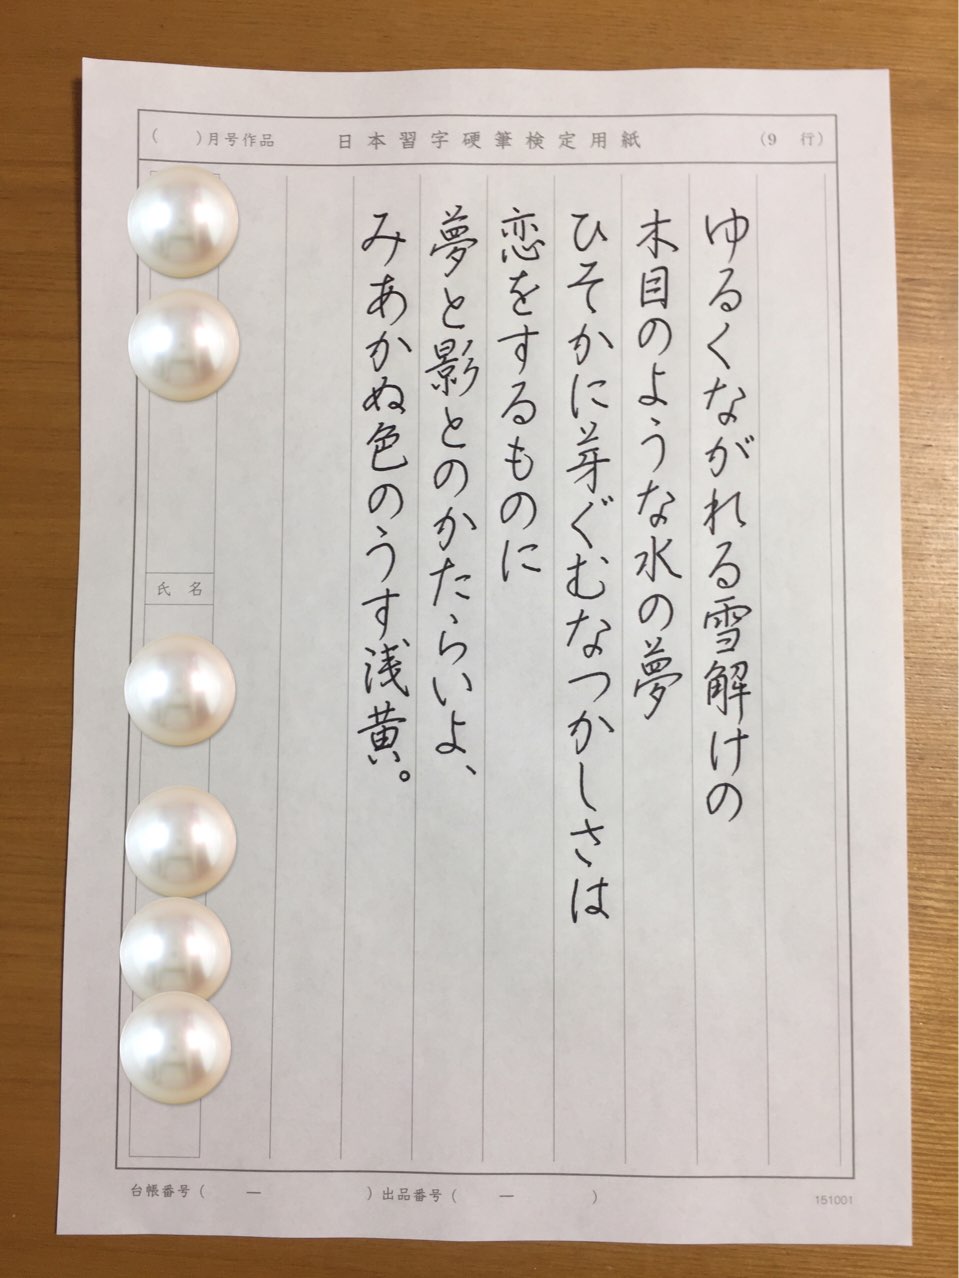 ( )月号作品 日本習字硬筆検定用紙 (9 行)
ゆるくながれる雪解けの
木目のような水の夢
ひそかに芽ぐむなつかしさは
恋をするものに
夢と影とのかたらいよ、
みあかぬ色のうす浅黄。
氏名
台帳番号( ー )出品番号( ー )
151001